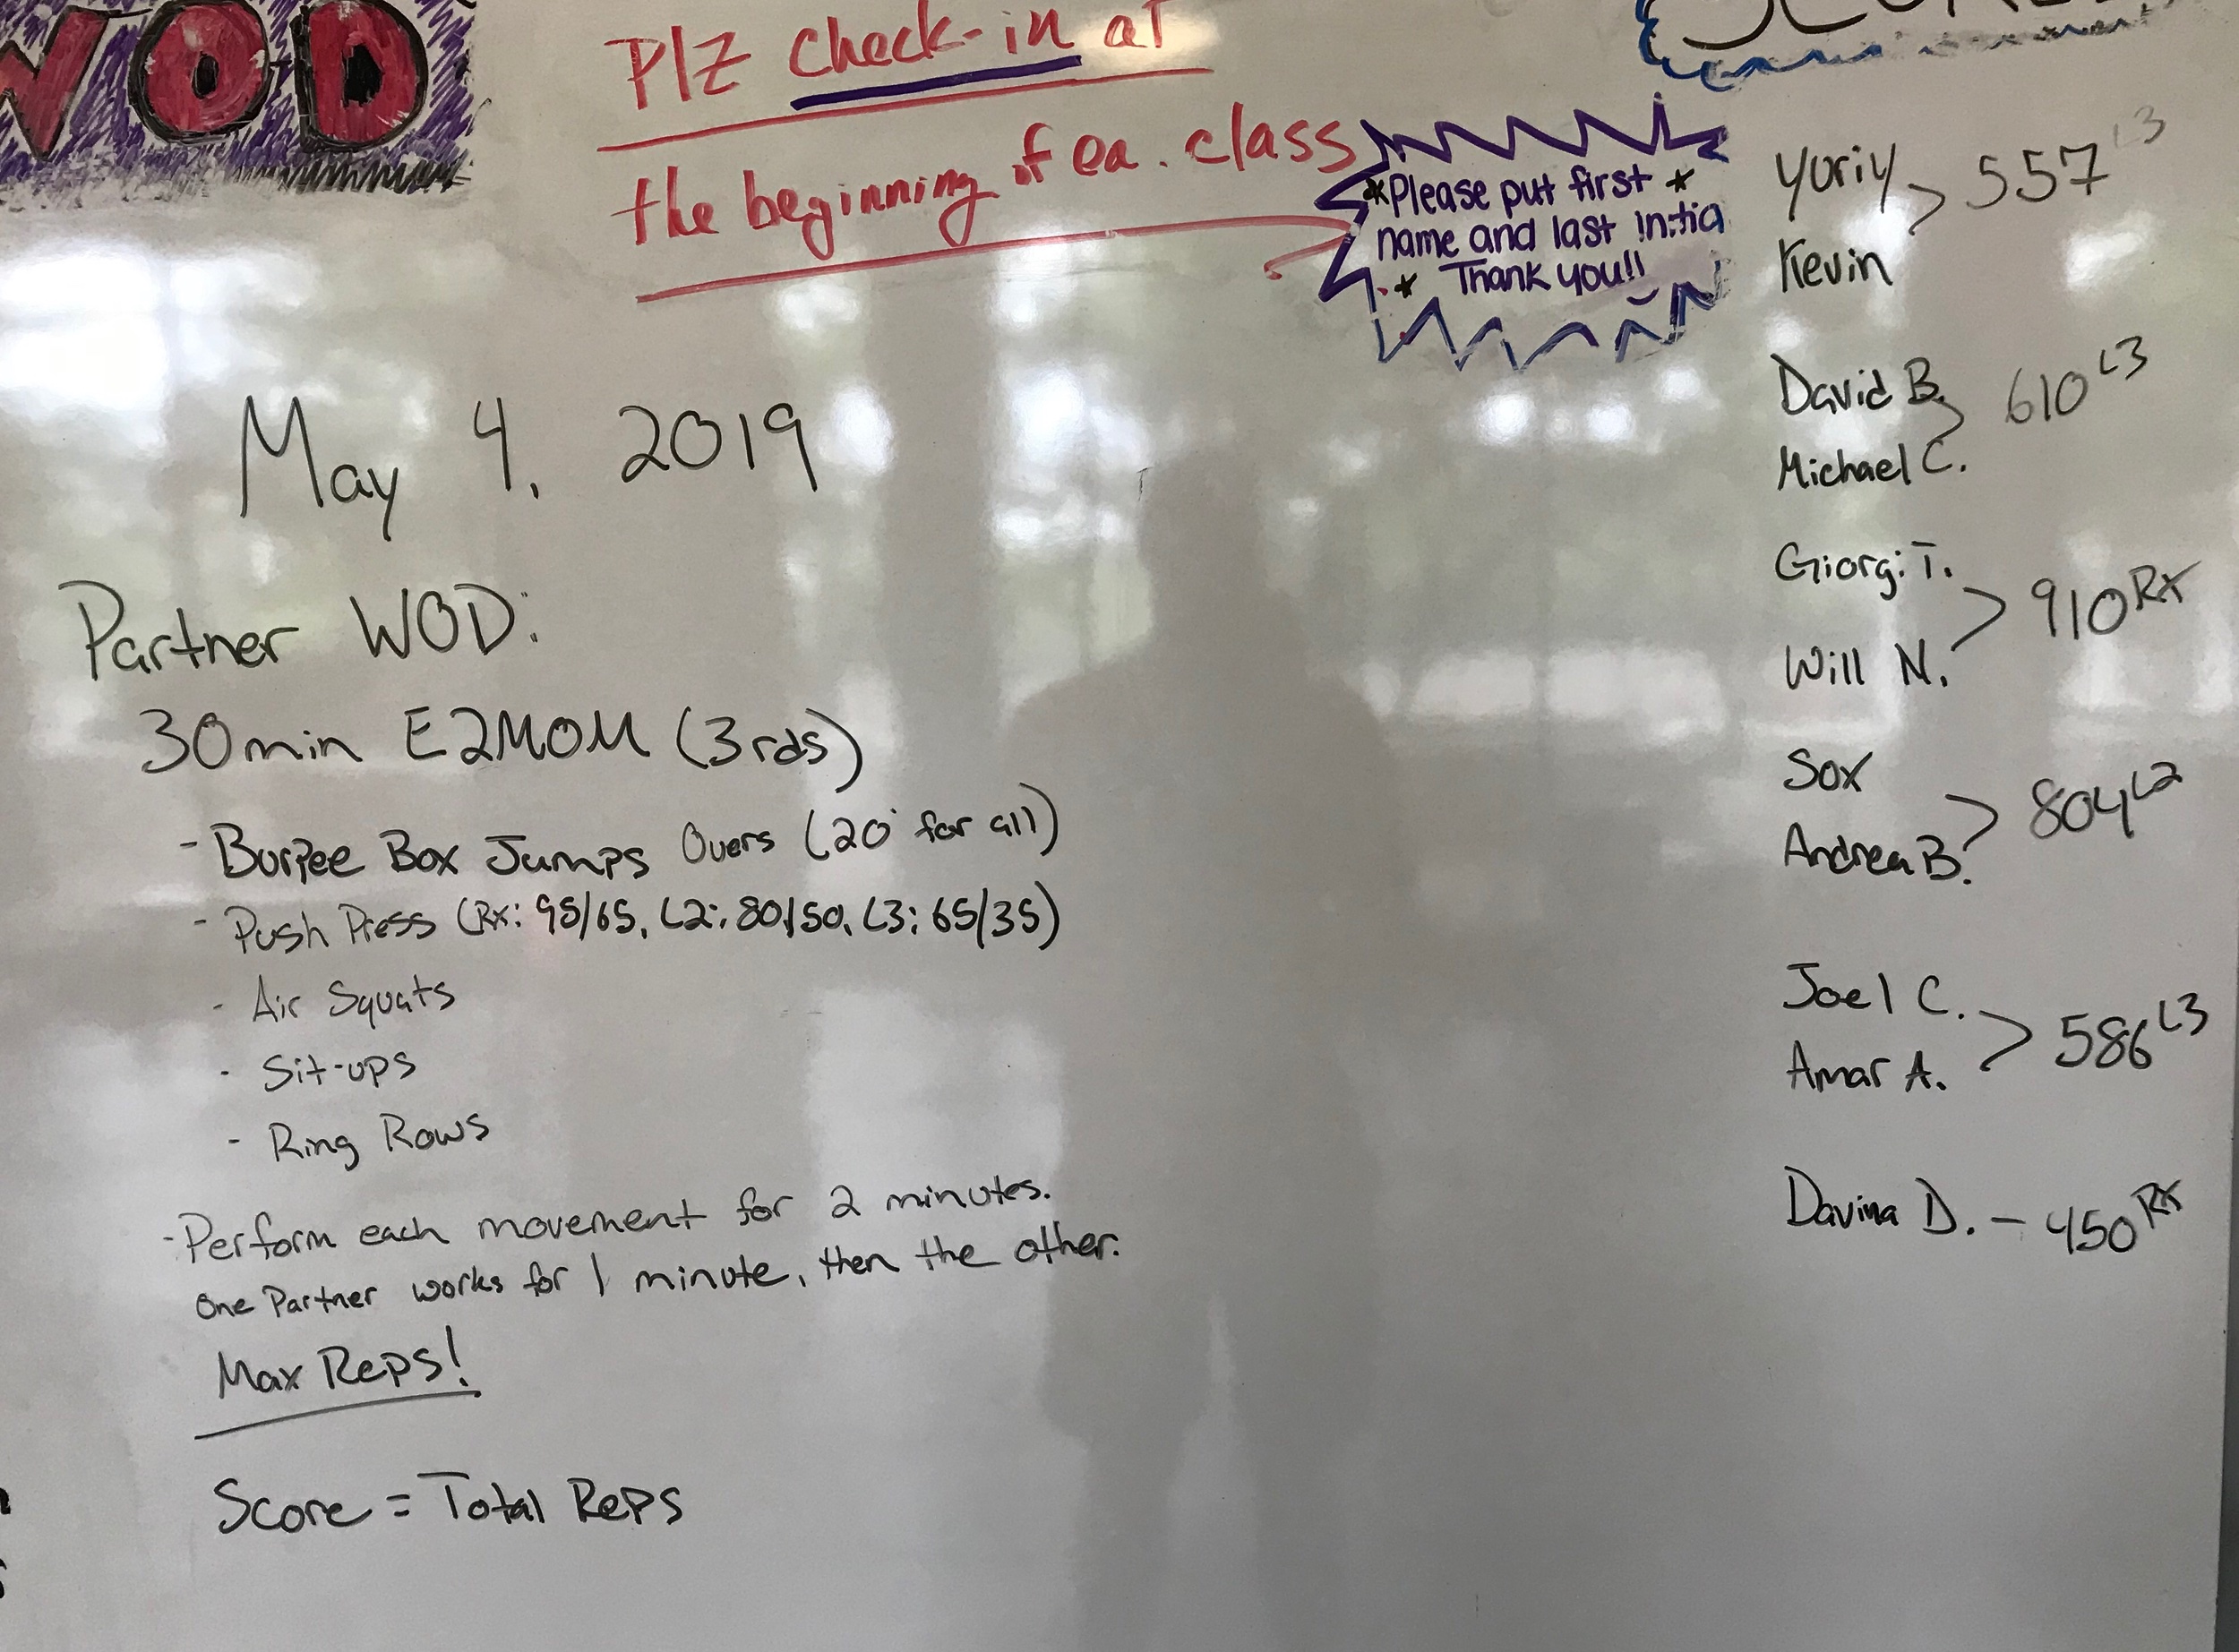 WOD
Plz check-in at
the beginning of ea. class
*Please put first *
name and last initia
* Thank you!!
May 4, 2019
Partner WOD:
30min E2MOM (3rds)
- Burpee Box Jumps Overs (20" for all)
- Push Press (Rx: 95/65, L2: 80/50, L3: 65/35)
- Air Squats
- Sit-ups
- Ring Rows
- Perform each movement for 2 minutes.
One Partner works for 1 minute, then the other.
Max Reps!
Score = Total Reps
Yuriy
Kevin > 557 L3
David B.
Michael C. > 610 L3
Giorgi T.
Will N. > 910 Rx
Sox
Andrea B. > 804 L2
Joel C.
Amar A. > 586 L3
Davina D. - 450 Rx